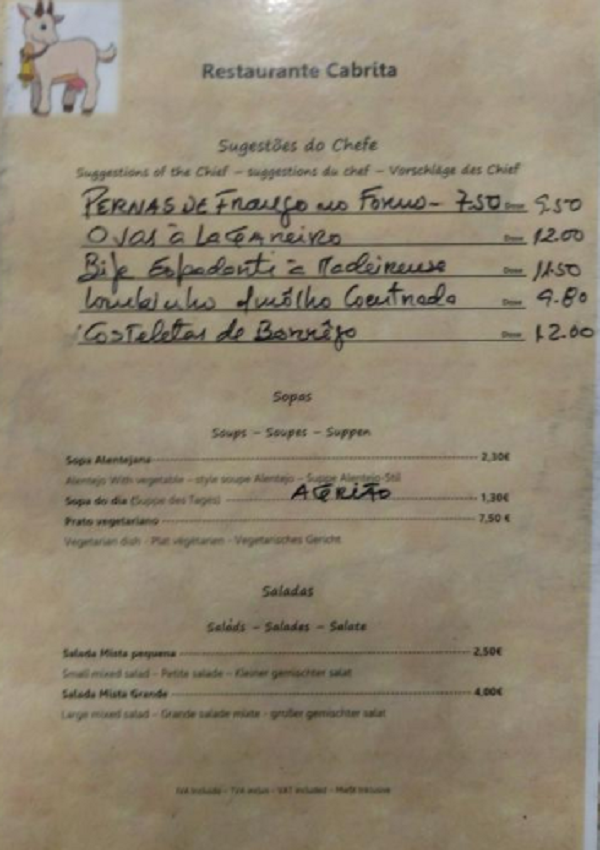 Restaurante Cabrita
Sugestões do Chefe
Suggestions of the Chief – suggestions du chef – Vorschläge des Chief
PERNAS DE Frango no Forno - 7.50 Dose 9.50
Ovas à Lagareiro Dose 12.00
Bife Espadarte à Madeirense Dose 11.50
Lombinho Coentrada Dose 9.80
Costeletas de Borrêgo Dose 12.00
Sopas
Soups – Soupes – Suppen
Sopa Alentejana 2,30€
Alentejo With vegetable – style soupe Alentejo – Suppe Alentejo-Stil
Sopa do dia (Suppe des Tages) AGRIÃO 1,30€
Prato vegetariano 7,50 €
Vegetarian dish - Plat végétarien - Vegetarisches Gericht
Saladas
Salads – Salades – Salate
Salada Mista pequena 2,50€
Small mixed salad – Petite salade – Kleiner gemischter salat
Salada Mista Grande 4,00€
Large mixed salad – Grande salade mixte - großer gemischter salat
IVA incluido - TVA inclus - VAT included - MwSt inklusive